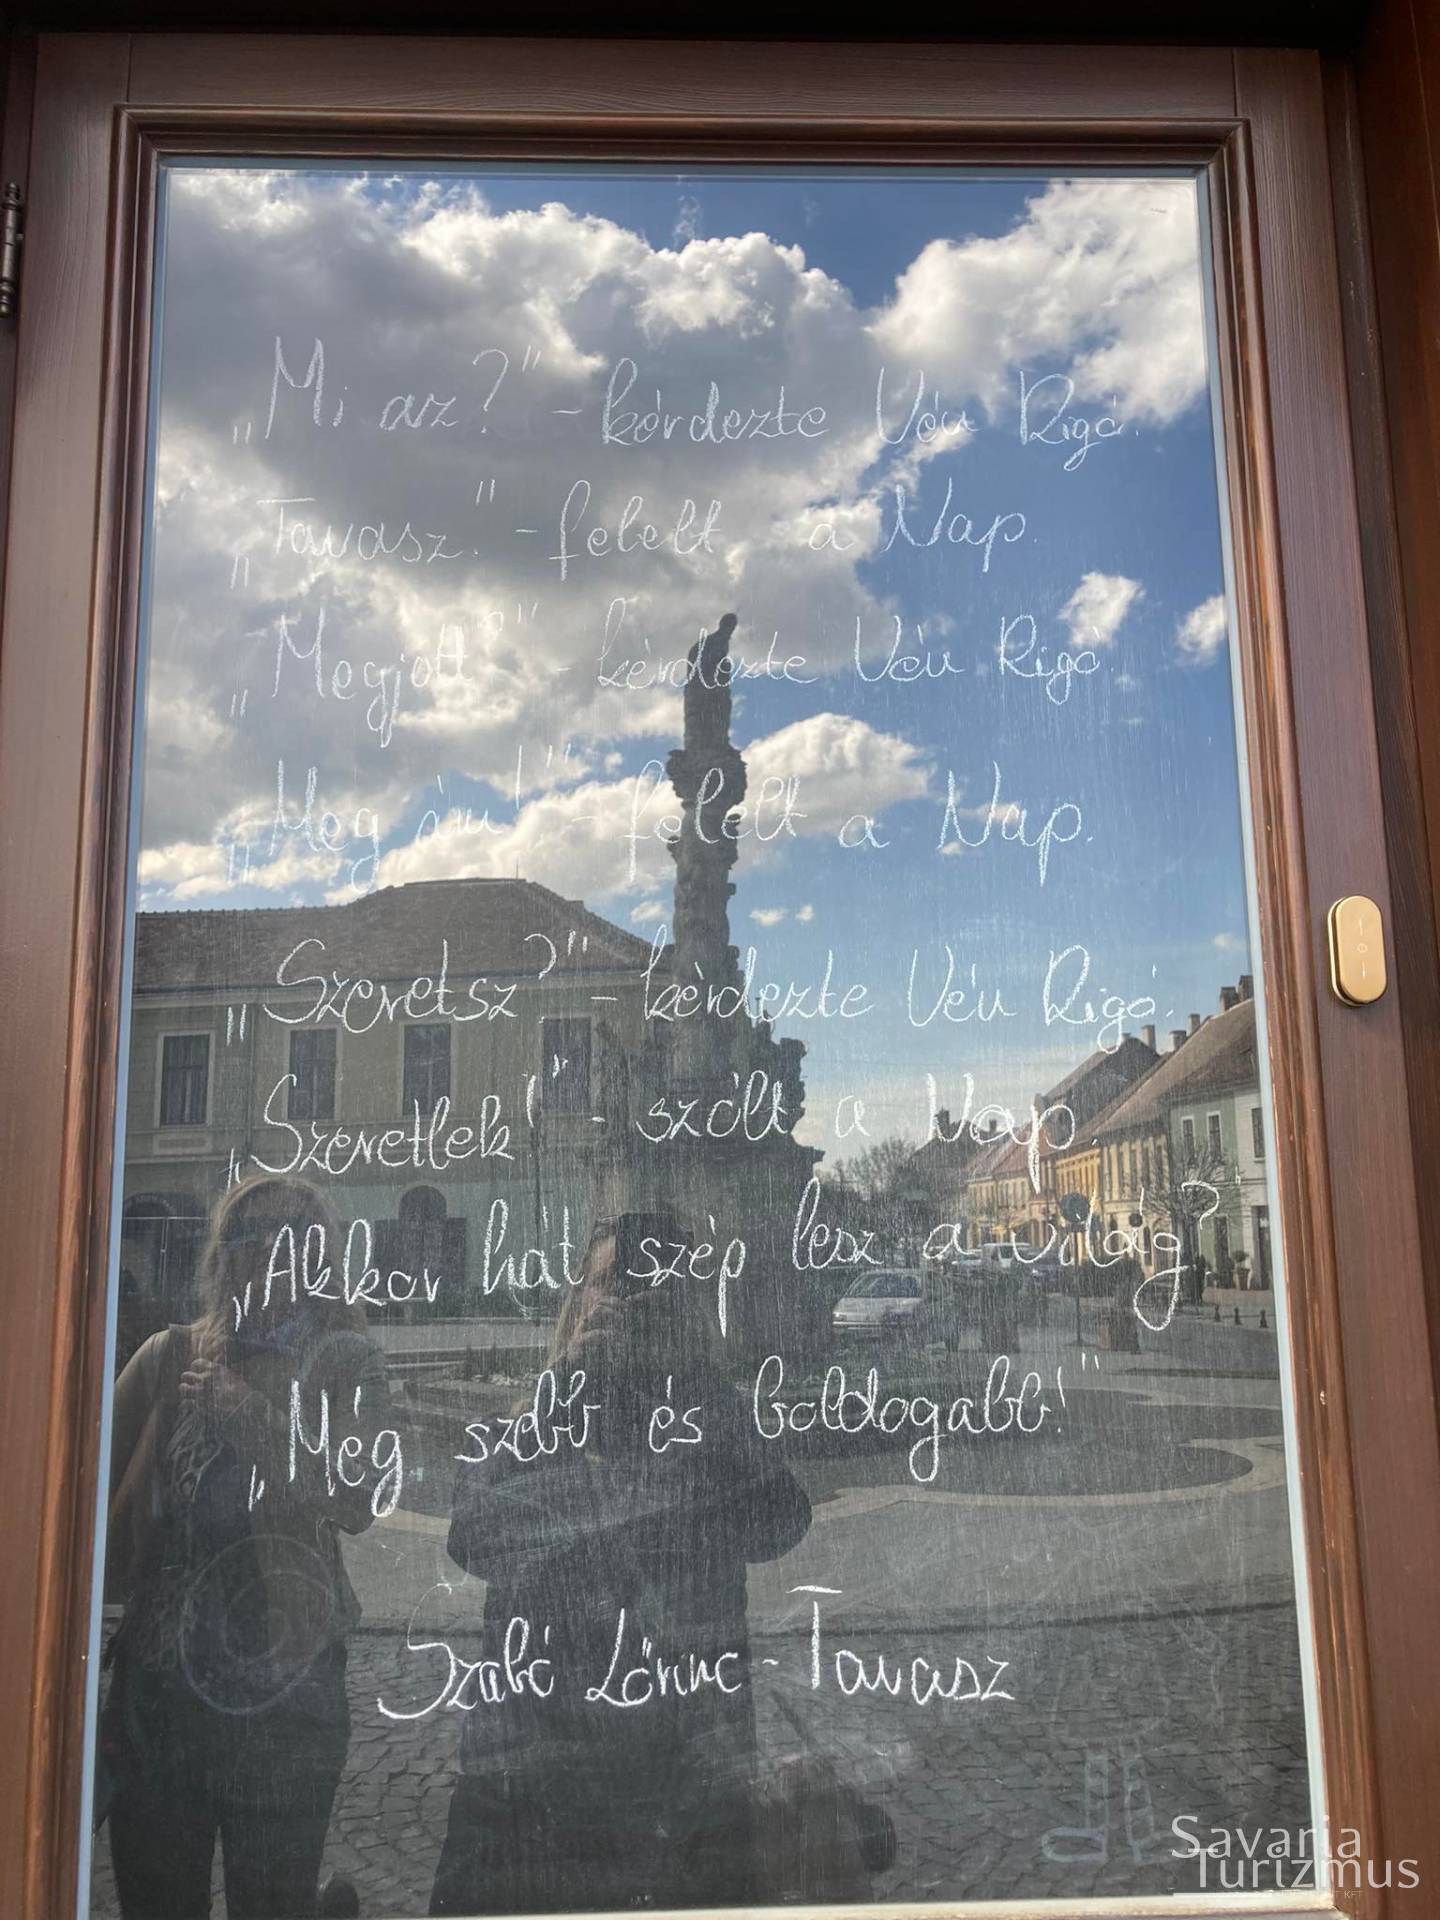 „Mi az?" - kérdezte Vén Rigó.
„Tavasz." - felelt a Nap.
„Megjött?" - kérdezte Vén Rigó.
„Meg ám!" - felelt a Nap.
„Szeretsz?" - kérdezte Vén Rigó.
„Szeretlek!" - szólt a Nap.
„Akkor hát szép lesz a világ?"
„Még szebb és boldogabb!"
Szabó Lőrinc - Tavasz
Savaria
Turizmus